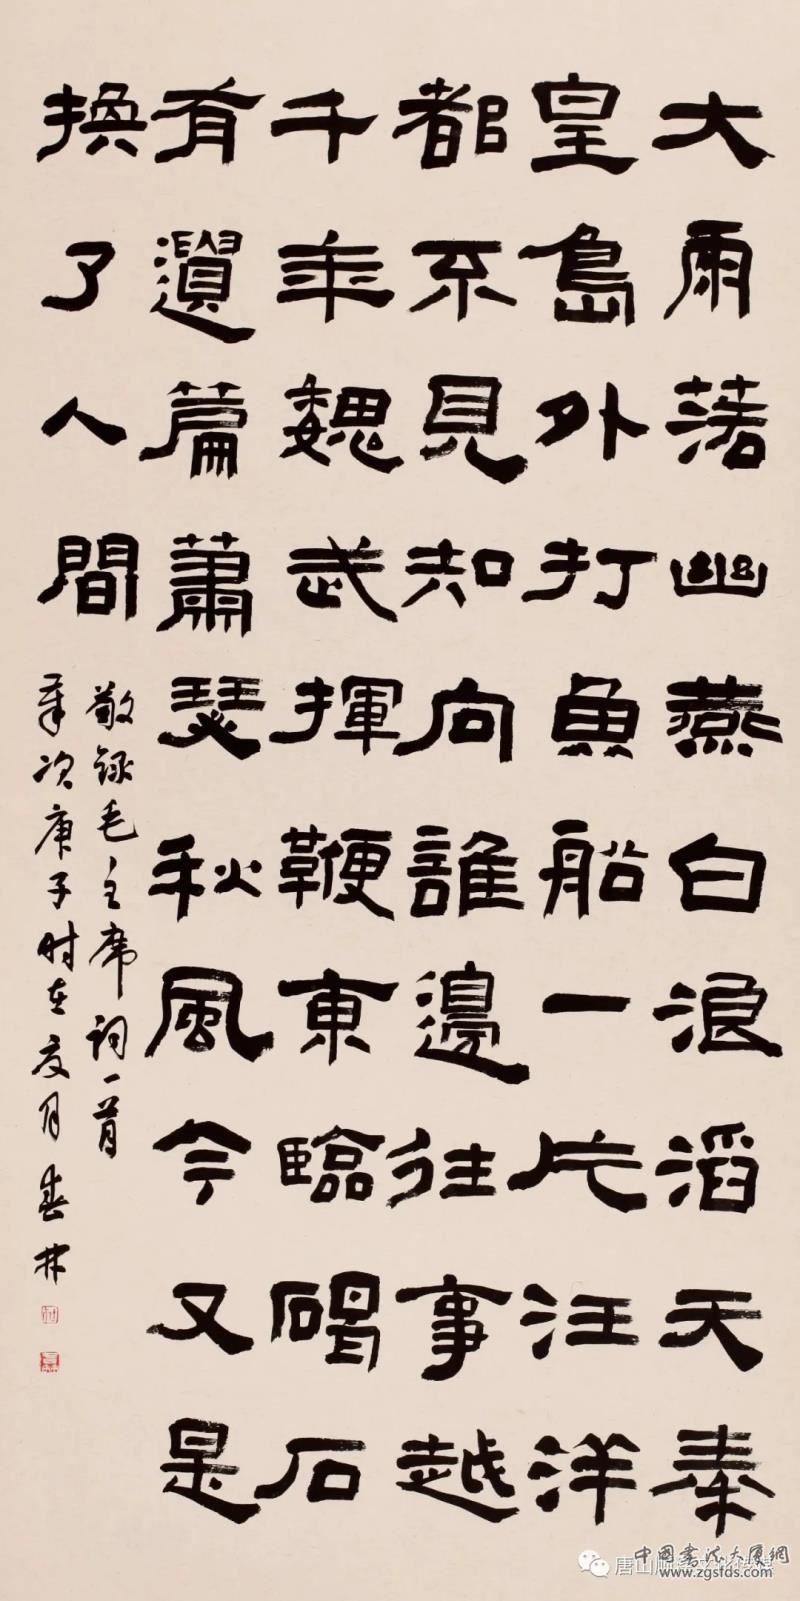 大雨落幽燕白浪滔天秦
皇島外打魚船一片汪洋
都不見知向誰邊往事越
千年魏武揮鞭東臨碣石
有遺篇蕭瑟秋風今又是
換了人間
敬録毛主席詞一首
歲次庚子时在夏月春林
中國書法大厦網
www.zgsfds.com